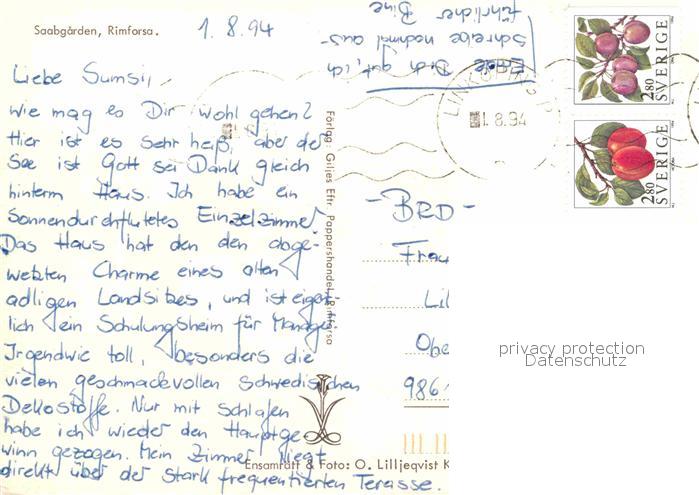 Saabgården, Rimforsa.
1.8.94
Liebe Sumsi,
wie mag es Dir wohl gehen?
Hier ist es sehr heiß, aber der
See ist Gott sei Dank gleich
hinterm Haus. Ich habe ein
Sonnendurchflutetes Einzelzimmer
Das Haus hat den den abge-
wetzten Charme eines alten
adligen Landsitzes, und ist eigent-
lich ein Schulungsheim für Manager
Irgendwie toll, besonders die
vielen geschmackvollen schwedischen
Dekostoffe. Nur mit Schlafen
habe ich wieder den Hauptge
winn gezogen. Mein Zimmer liegt
direkt über der stark frequentierten Terasse.
Dich gut, ich
schreibe nochmal aus-
führlicher Bine
Förlag: Giljes Eftr. Pappershandel, Rimforsa
Ensamrätt & Foto: O. Lilljeqvist K
LINKÖPING
1.8.94
SVERIGE
2.80
SVERIGE
2.80
- BRD -
Frau
Lil
Obe
986
privacy protection
Datenschutz